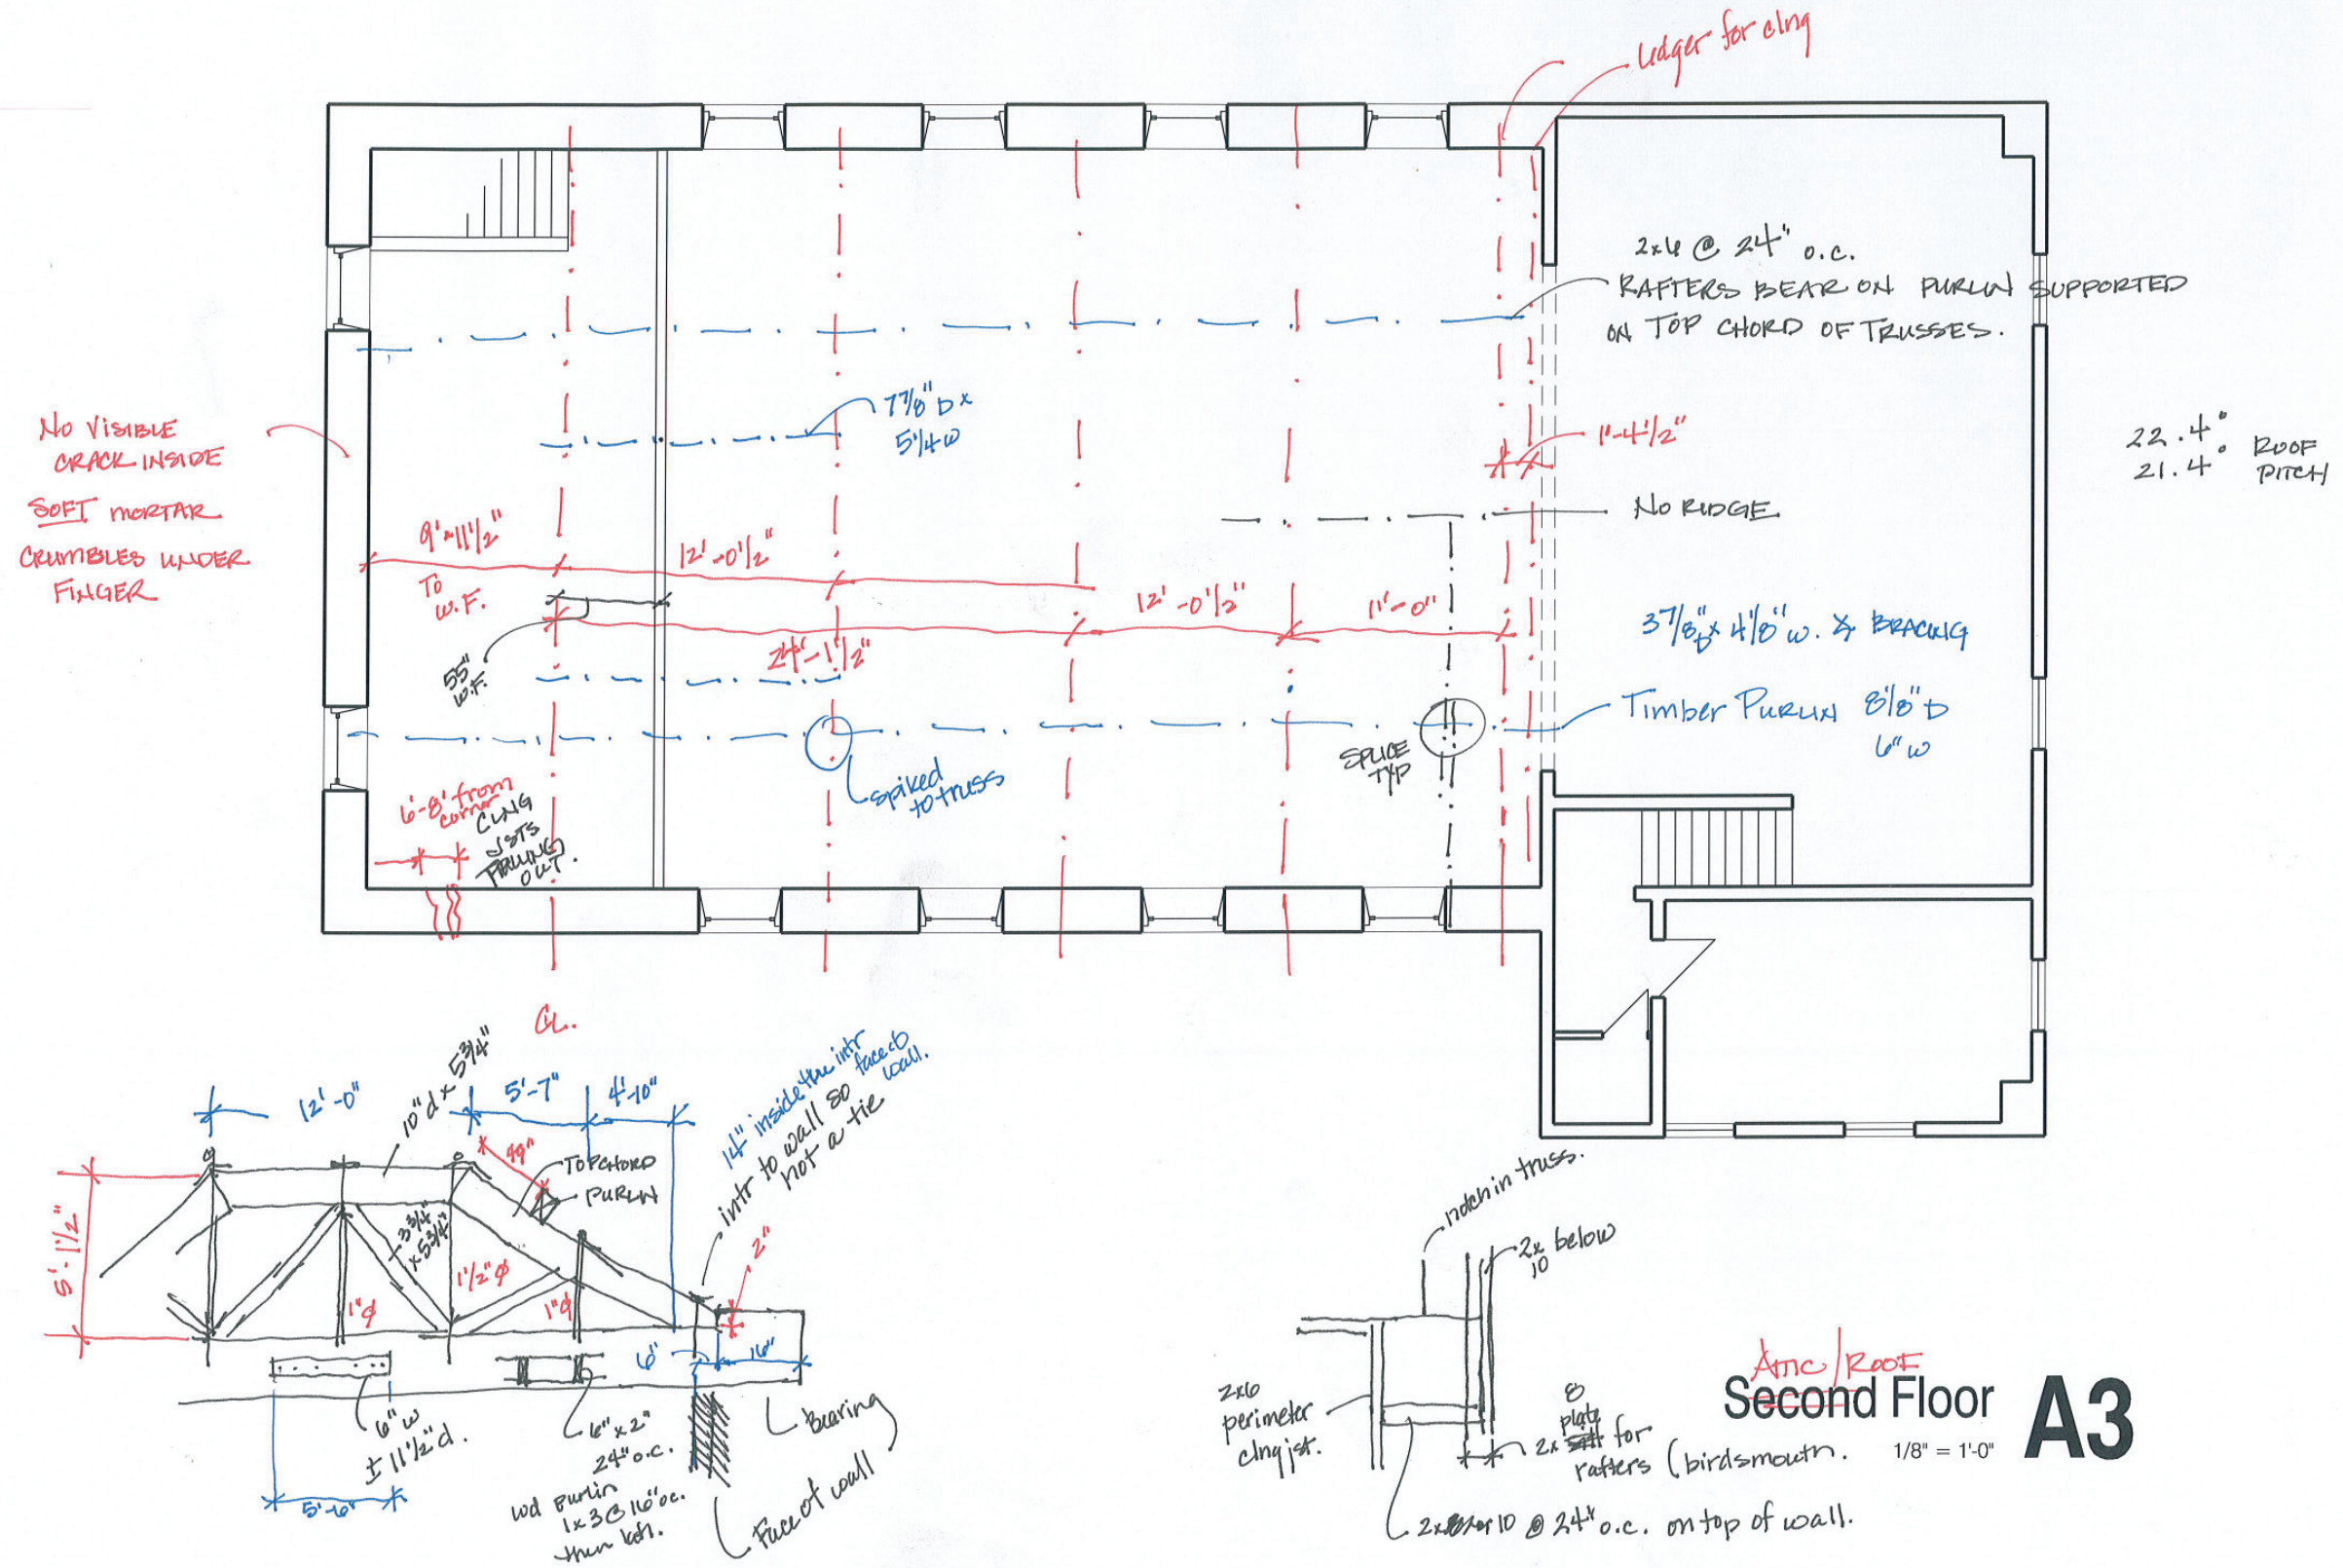 ledger for clng
2x6 @ 24" o.c.
RAFTERS BEAR ON PURLIN SUPPORTED
ON TOP CHORD OF TRUSSES.
7 7/8" D x
5 1/4 w
NO VISIBLE
CRACK INSIDE
SOFT MORTAR
CRUMBLES UNDER
FINGER
1'-4 1/2"
22.4°
21.4° ROOF
PITCH
NO RIDGE
9'-11 1/2"
TO
W.F.
12'-0 1/2"
12'-0 1/2"
11'-0"
24'-1 1/2"
55"
W.F.
3 7/8" D x 4 1/8" w. BRACING
Timber PURLIN 8 1/8" D
6" w
SPLICE
TYP
spiked
to truss
6'-8' from
corner
CLNG
JSTS
PULLING
OUT.
CL.
12'-0"
10"d x 5 3/4"
5'-7"
4'-10"
14" inside the intr
face of
wall.
intr to wall so
not a tie
49"
TOP CHORD
PURLIN
5'-1 1/2"
3 3/4"
x 5 3/4"
1"φ
1 1/2"φ
1"φ
2"
6"
16"
6" w
± 11 1/2" d.
5'-6"
6" x 2"
24" o.c.
wd purlin
1x3 @ 16" oc.
then lath.
Bearing
Face of wall
notch in truss.
2x below
10
2x6
perimeter
clng jst.
8
plate
2x for
rafters (birdsmouth.
10 @ 24" o.c. on top of wall.
ATTIC/ROOF
Second Floor A3
1/8" = 1'-0"